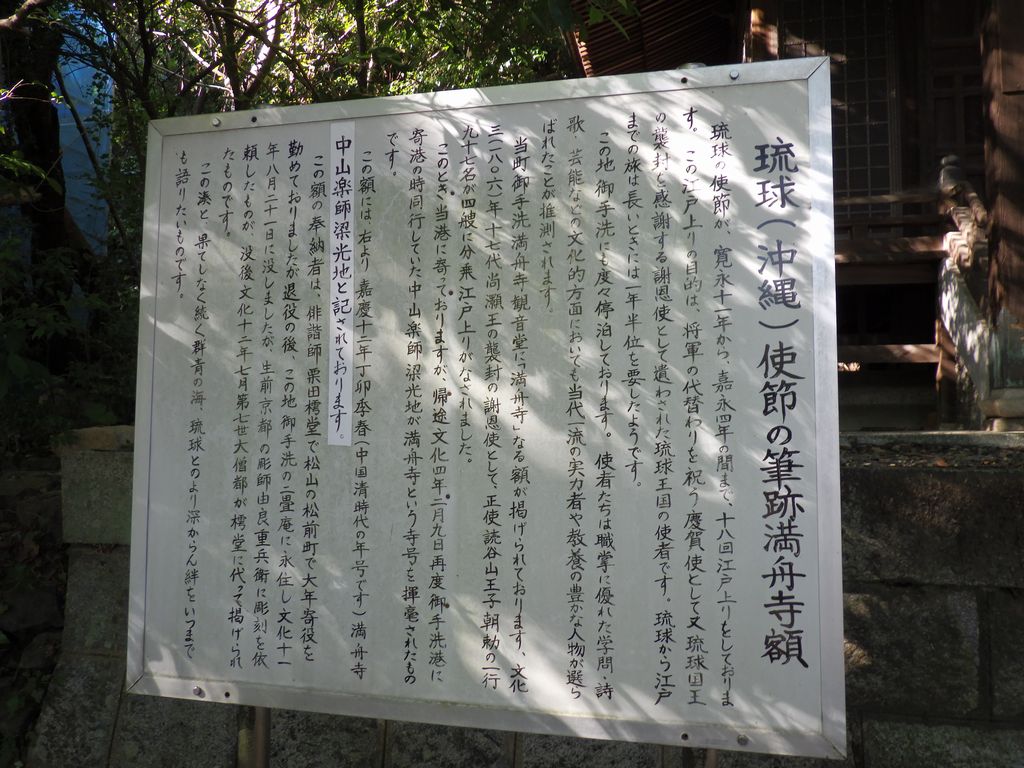 琉球(沖縄)使節の筆跡満舟寺額
琉球の使節が、寛永十一年から、嘉永四年の間まで、十八回江戸上りをしておりま
す。この江戸上りの目的は、将軍の代替わりを祝う慶賀使として又琉球国王
の襲封を感謝する謝恩使として遣わされた琉球王国の使者です。琉球から江戸
までの旅は長いときには一年半位を要したようです。
この地御手洗にも度々停泊しております。使者たちは職掌に優れた学問、詩
歌、芸能などの文化的方面においても当代一流の実力者や教養の豊かな人物が選ら
ばれたことが推測されます。
当町御手洗満舟寺観音堂に「満舟寺」なる額が掲げられております、文化
三(一八〇六)年、十七代尚灝王の襲封の謝恩使として、正使読谷山王子朝勅の一行
九十七名が四艘に分乗江戸上りがなされました。
このとき当港に寄っておりますが、帰途文化四年二月九日再度御手洗港に
寄港の時同行していた中山楽師梁光地が満舟寺という寺号を揮毫されたもの
です。
この額には、右より嘉慶十二年丁卯季春(中国清時代の年号です)満舟寺
中山楽師梁光地と記されております。
この額の奉納者は、俳諧師栗田樗堂で松山の松前町で大年寄役を
勤めておりましたが退役の後、この地御手洗の二畳庵に永住し文化十一
年八月二十一日に没しましたが、生前京都の彫師由良重兵衛に彫刻を依
頼したものが、没後文化十二年七月第七世大僧都が樗堂に代って掲げられ
たものです。
この湊と、果てしなく続く群青の海、琉球とのより深からん絆をいつまで
も語りたいものです。